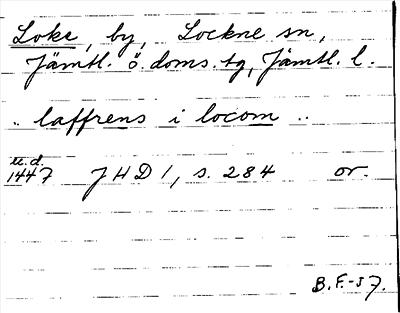 Loke, by, Lockne sn,
Jämtl. ö. doms. tg, Jämtl. l.
.. laffrens i locom ..
u.d.
1447 JHD 1, s. 284 or.
B.F.-57.